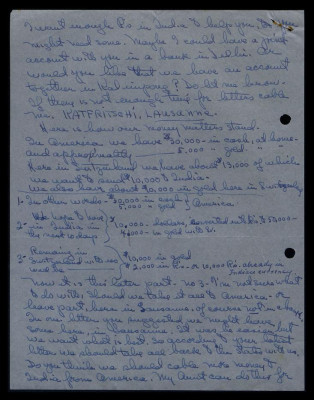 want enough Rs in India to help you. Do you
might need some. Maybe I could have a joint
account with you in a bank in Delhi. Or
would you like that we have an account
together in Kalimpong? Do let me know.
If there is not enough time for letters cable
me, KATPRITCHI, LAUSANNE.
Here is how our money matters stand.
In America we have $30,000 - in cash, at home -
and approximately 5,000 - gold -
Here in Switzerland we have about $15,000 of which
we want to send $10,000 to India -
We also have about $10,000 in gold here in S -
1- In other words - $30,000 in cash
5,000 - gold } America
We hope to have
2- in India in
the next days } $10,000 - dollars, converted into Rs 50,000 -
in gold with us.
Remaining in
3- Switzerland with us
will be } $10,000 in gold
$2,000 in Rs - or 10,000 Rs. already in
Indian currency
Now it is this latter part - no 3 - I'm not sure what
to do with. Should we take it all to America - or
leave part, here in Lausanne, of course not in a bank
In our letter you suggested we might leave
some here, in Lausanne. It was be easier, but
we want what is best. So according to your next
letter we should take all back to the States with us.
Do you think we should cable more money to
India from America. My Aunt can do this for